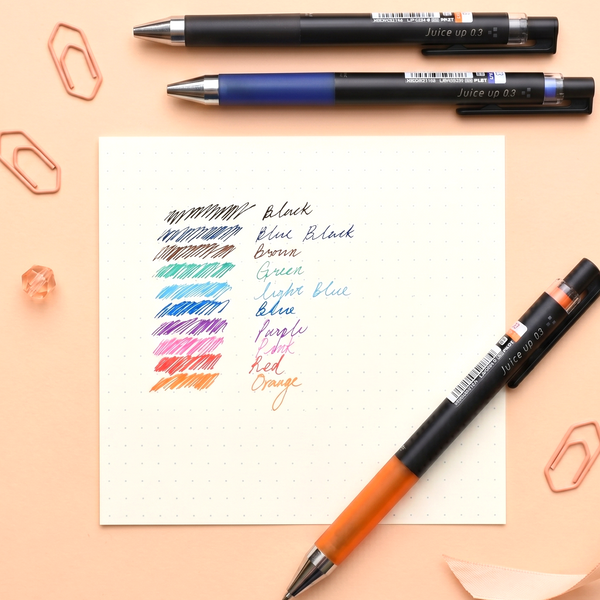 Juice up 0.3
Juice up 0.3
Black
Blue Black
Brown
Green
light Blue
Blue
Purple
Pink
Red
Orange
Juice up 0.3